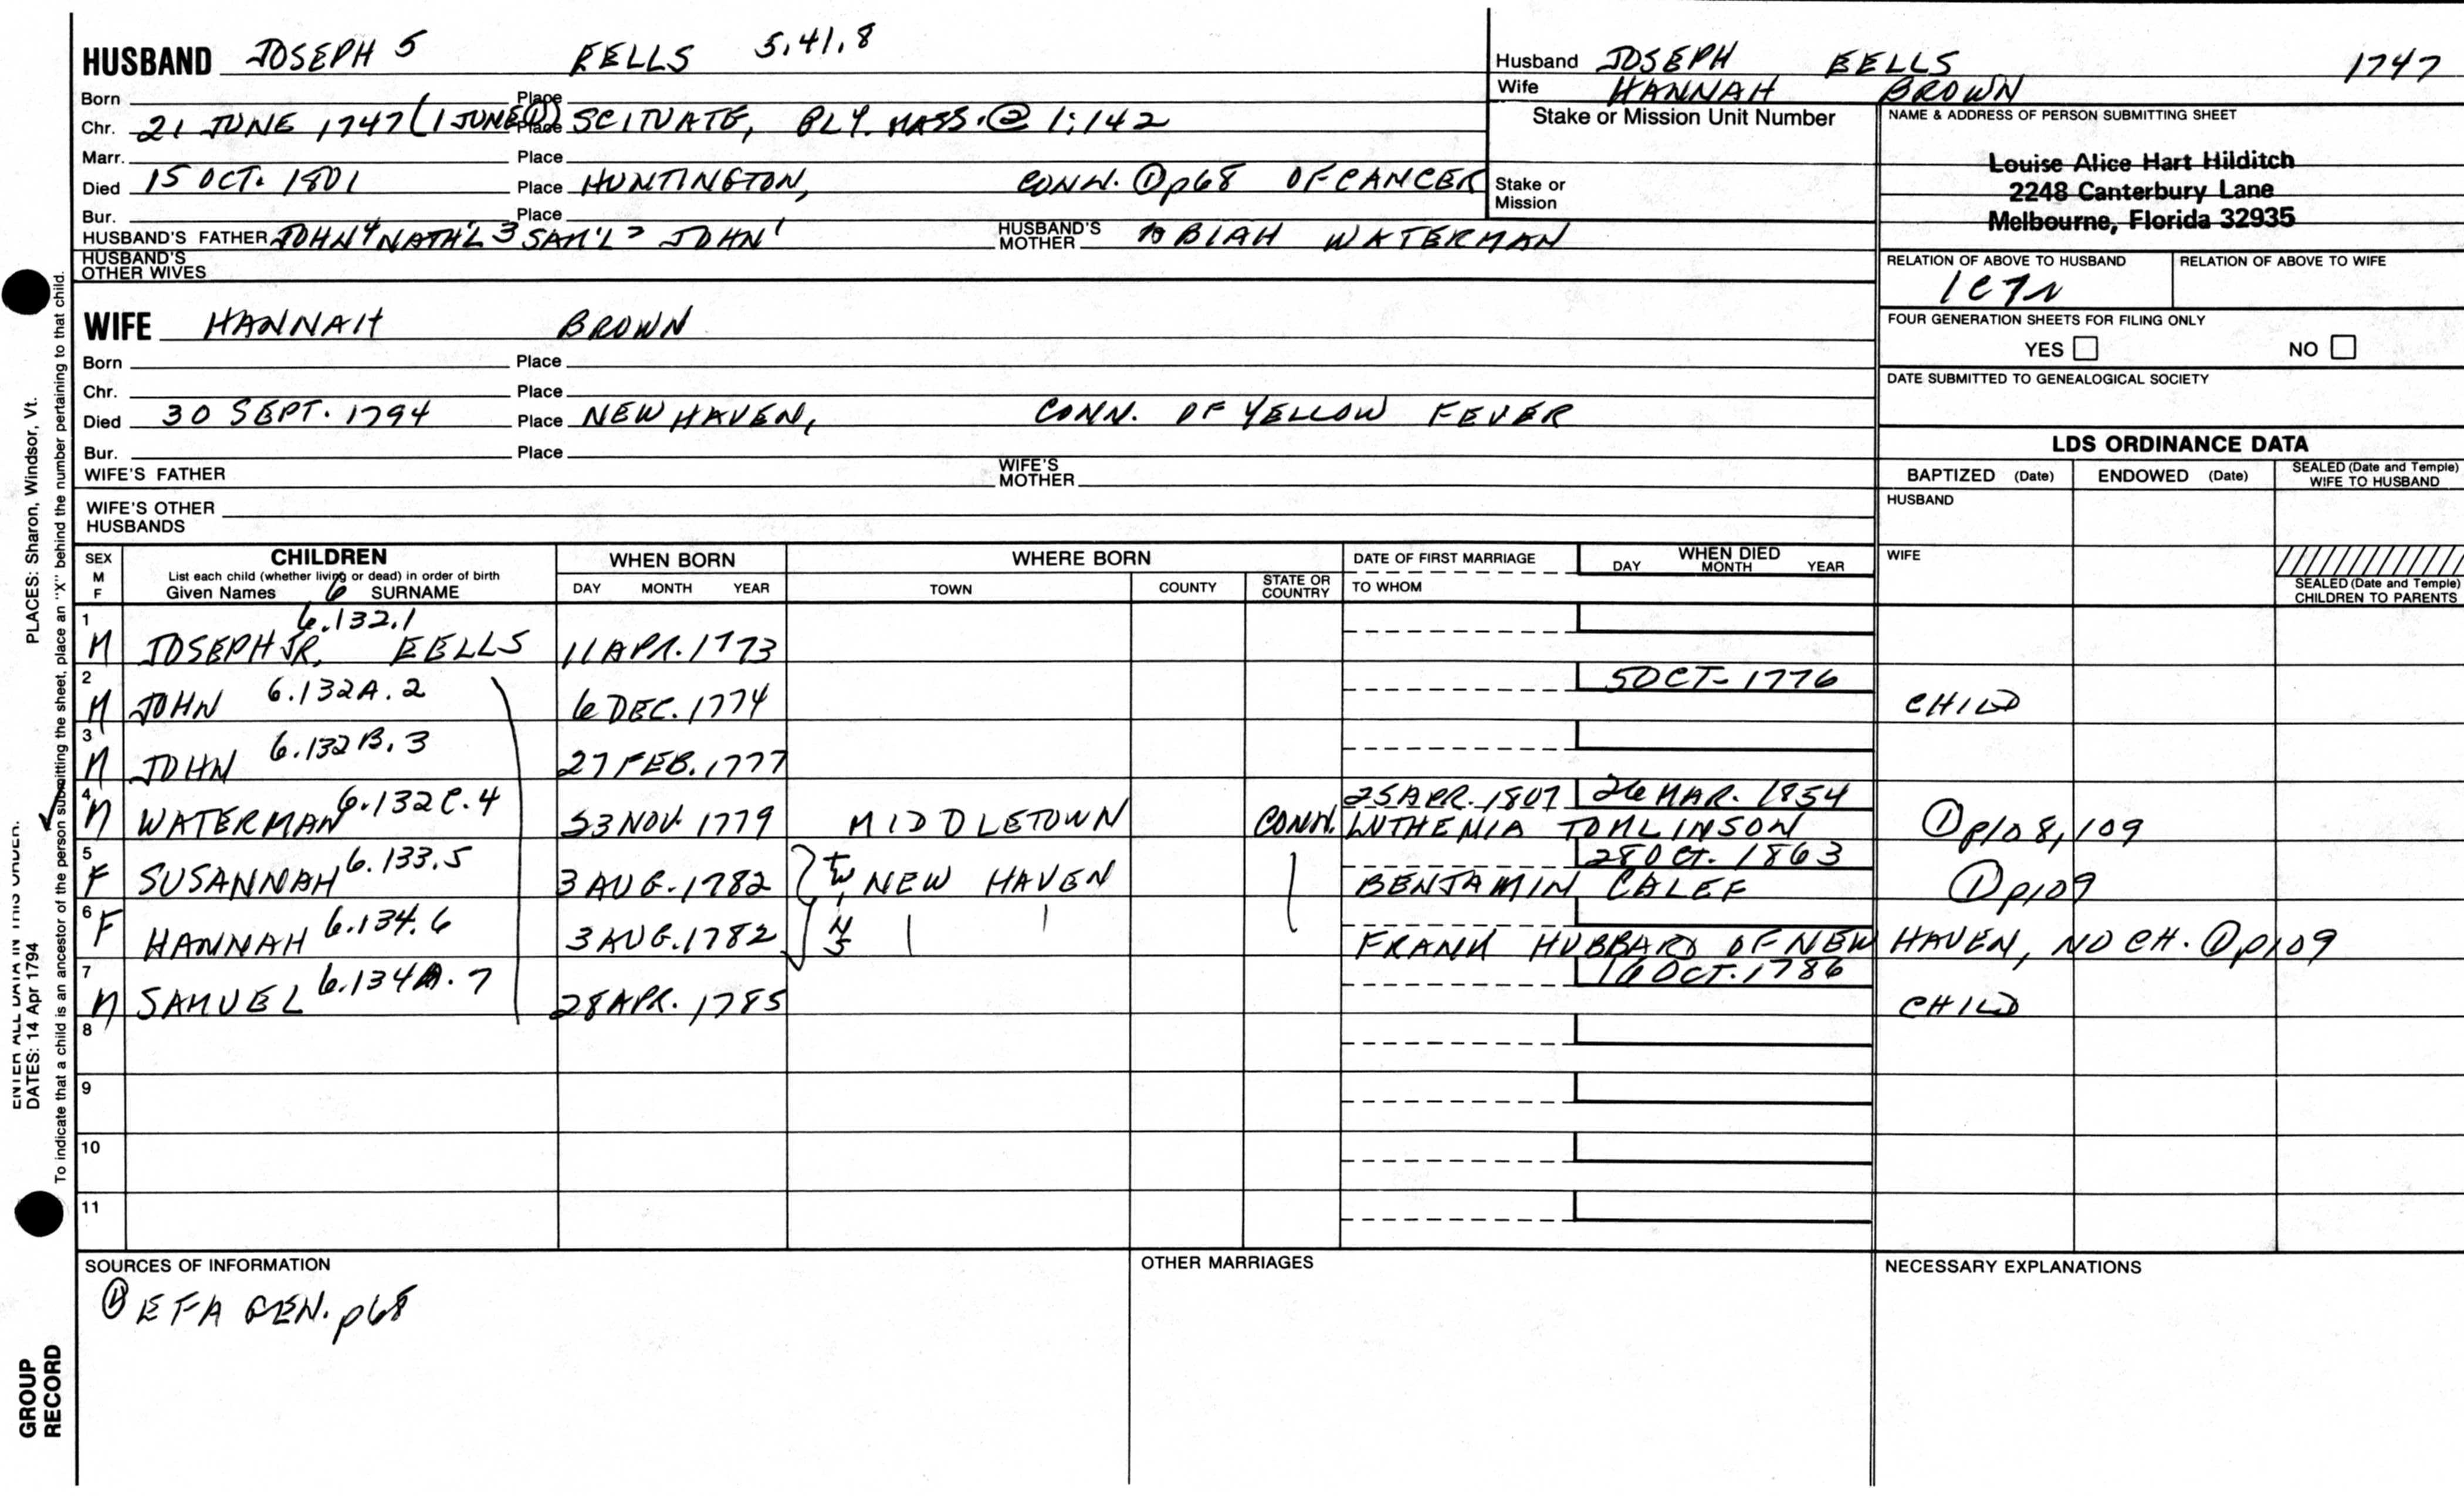 HUSBAND JOSEPH 5 EELLS 5.41.8
Born Place
Chr. 21 JUNE 1747 (1 JUNE ①) Place SCITUATE, PLY. MASS. @ 1:142
Marr. Place
Died 15 OCT. 1801 Place HUNTINGTON, CONN. ① p68 OF CANCER
Bur. Place
HUSBAND'S FATHER JOHN 4 NATH'L 3 SAM'L 2 JOHN 1 HUSBAND'S MOTHER ABIAH WATERMAN
HUSBAND'S OTHER WIVES
Husband JOSEPH EELLS 1747
Wife HANNAH BROWN
Stake or Mission Unit Number
Stake or Mission
NAME & ADDRESS OF PERSON SUBMITTING SHEET
Louise Alice Hart Hilditch
2248 Canterbury Lane
Melbourne, Florida 32935
RELATION OF ABOVE TO HUSBAND RELATION OF ABOVE TO WIFE
1C7R
FOUR GENERATION SHEETS FOR FILING ONLY
YES NO
DATE SUBMITTED TO GENEALOGICAL SOCIETY
WIFE HANNAH BROWN
Born Place
Chr. Place
Died 30 SEPT. 1794 Place NEW HAVEN, CONN. OF YELLOW FEVER
Bur. Place
WIFE'S FATHER WIFE'S MOTHER
WIFE'S OTHER HUSBANDS
LDS ORDINANCE DATA
BAPTIZED (Date) ENDOWED (Date) SEALED (Date and Temple) WIFE TO HUSBAND
HUSBAND
WIFE
SEALED (Date and Temple) CHILDREN TO PARENTS
SEX M F
CHILDREN
List each child (whether living or dead) in order of birth
Given Names 6 SURNAME
WHEN BORN
DAY MONTH YEAR
WHERE BORN
TOWN COUNTY STATE OR COUNTRY
DATE OF FIRST MARRIAGE
TO WHOM
WHEN DIED
DAY MONTH YEAR
1 M JOSEPH JR. EELLS 6.132.1 11 APR. 1773
2 M JOHN 6.132A.2 6 DEC. 1774 5 OCT. 1776 CHILD
3 M JOHN 6.132B.3 27 FEB. 1777
4 M WATERMAN 6.132C.4 23 NOV. 1779 MIDDLETOWN CONN. 25 APR. 1807 26 MAR. 1854
LUTHEMIA TOMLINSON ① p108,109
5 F SUSANNAH 6.133.5 3 AUG. 1782 NEW HAVEN 28 OCT. 1863
BENJAMIN CALEF ① p109
6 F HANNAH 6.134.6 3 AUG. 1782 FRANK HUBBARD OF NEW HAVEN, NO CH. ① p109
7 M SAMUEL 6.134A.7 28 APR. 1785 16 OCT. 1786 CHILD
8
9
10
11
SOURCES OF INFORMATION
① EFA GEN. p68
OTHER MARRIAGES
NECESSARY EXPLANATIONS
PLACES: Sharon, Windsor, Vt.
ENTER ALL DATA IN THIS ORDER:
DATES: 14 Apr 1794
To indicate that a child is an ancestor of the person submitting the sheet, place an "X" behind the number pertaining to that child.
GROUP RECORD